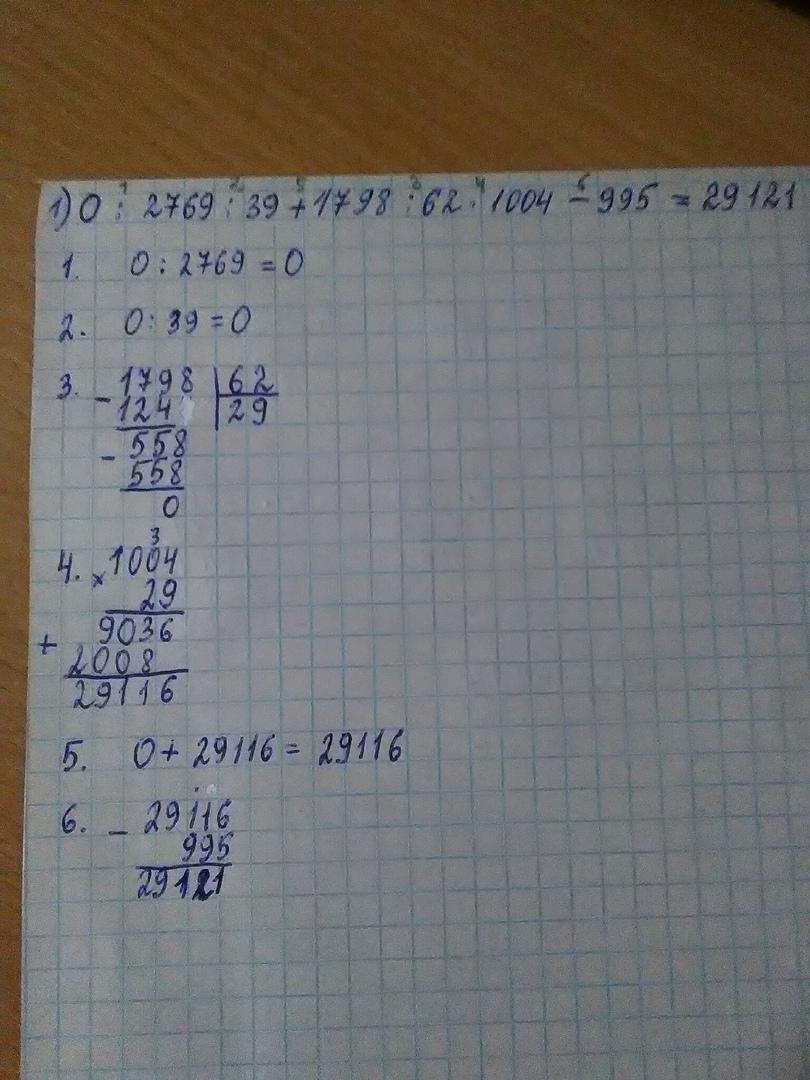 1) 0 : 2769 : 39 + 1798 : 62 · 1004 - 995 = 29121
1. 0 : 2769 = 0
2. 0 : 39 = 0
3. - 1798 | 62
124 | 29
- 558
558
0
3
4. x 1004
29
9036
+
2008
29116
5. 0 + 29116 = 29116
6. - 29116
995
29121